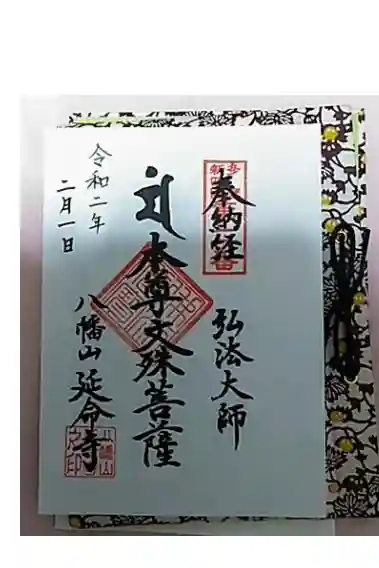 奉納経
弘法大師
本尊文殊菩薩
八幡山 延命寺
令和二年
二月一日
八幡山
之印